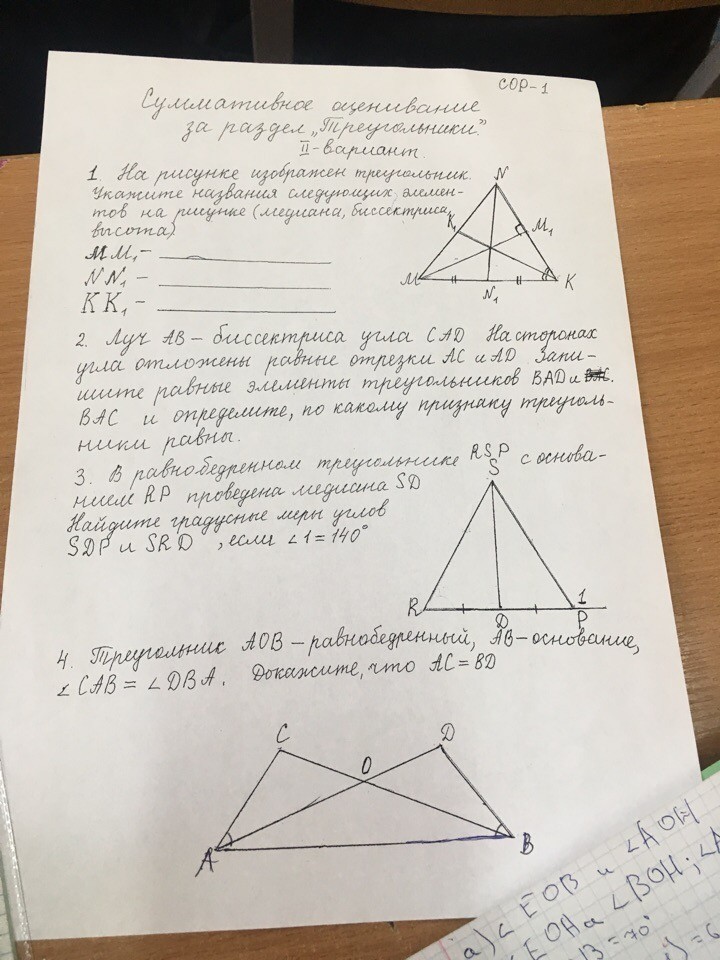 СОР-1
Суммативное оценивание
за раздел „Треугольники."
II-вариант.
1. На рисунке изображен треугольник.
Укажите названия следующих элемен-
тов на рисунке (медиана, биссектриса,
высота)
MM₁ -
NN₁ -
KK₁ -
N
K₁
M₁
M
N₁
K
2. Луч AB - биссектриса угла CAD На сторонах
угла отложены равные отрезки AC и AD Запи-
шите равные элементы треугольников BAD и
BAC и определите, по какому признаку треуголь-
ники равны.
3. В равнобедренном треугольнике RSP с основа-
нием RP проведена медиана SD
Найдите градусные меры углов
SDP и SRD , если ∠1=140°
S
R
D
P
1
4. Треугольник AOB - равнобедренный, AB - основание,
∠CAB = ∠DBA. Докажите, что AC = BD
C
D
O
A
B
а) ∠EOB и ∠AOH
∠EOH и ∠BOH; ∠A
B = 70°
= 6